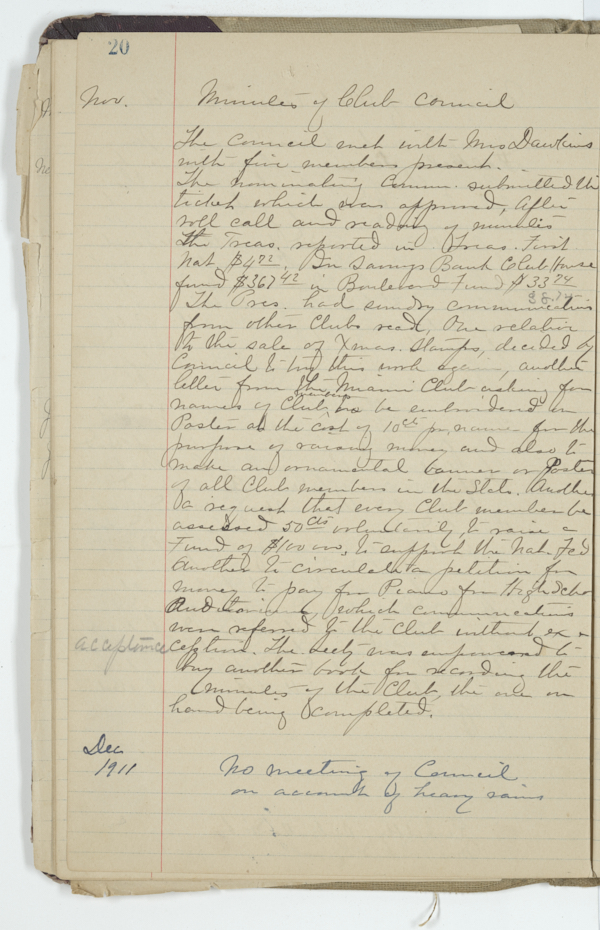 20
Nov. Minutes of Club Council
The Council met with Mrs Dawkins
with five members present.
The nominating Comm. submitted the
ticket which was approved, after
roll call and reading of minutes
The Treas. reported in Treas. First
Nat. $4.72. In Savings Bank Club House
fund $367 42 in Boulevard Fund $33 74
38.74
The Pres. had sundry communications
from other Clubs read, One relative
to the sale of Xmas. Stamps, decided by
Council to try this work again, another
letter from the Miami Club asking for
names of Club members to be embroidered on
Poster at the cost of 10cts per name for the
purpose of raising money and also to
make an ornamental banner or Poster
of all Club members in the State. Another
a request that every Club member be
assessed 50cts voluntarily, to raise a
Fund of $100 000, to support the Nat. Fed
Another to circulate a petition for
money to pay for Piano for High Scho
Auditorium, which communications
were referred to the Club without ex-
acceptance ception. The Secty was empowered to
buy another book for recording the
minutes of the Club, the one on
hand being completed.
Dec
1911 No meeting of Council
on account of heavy rains